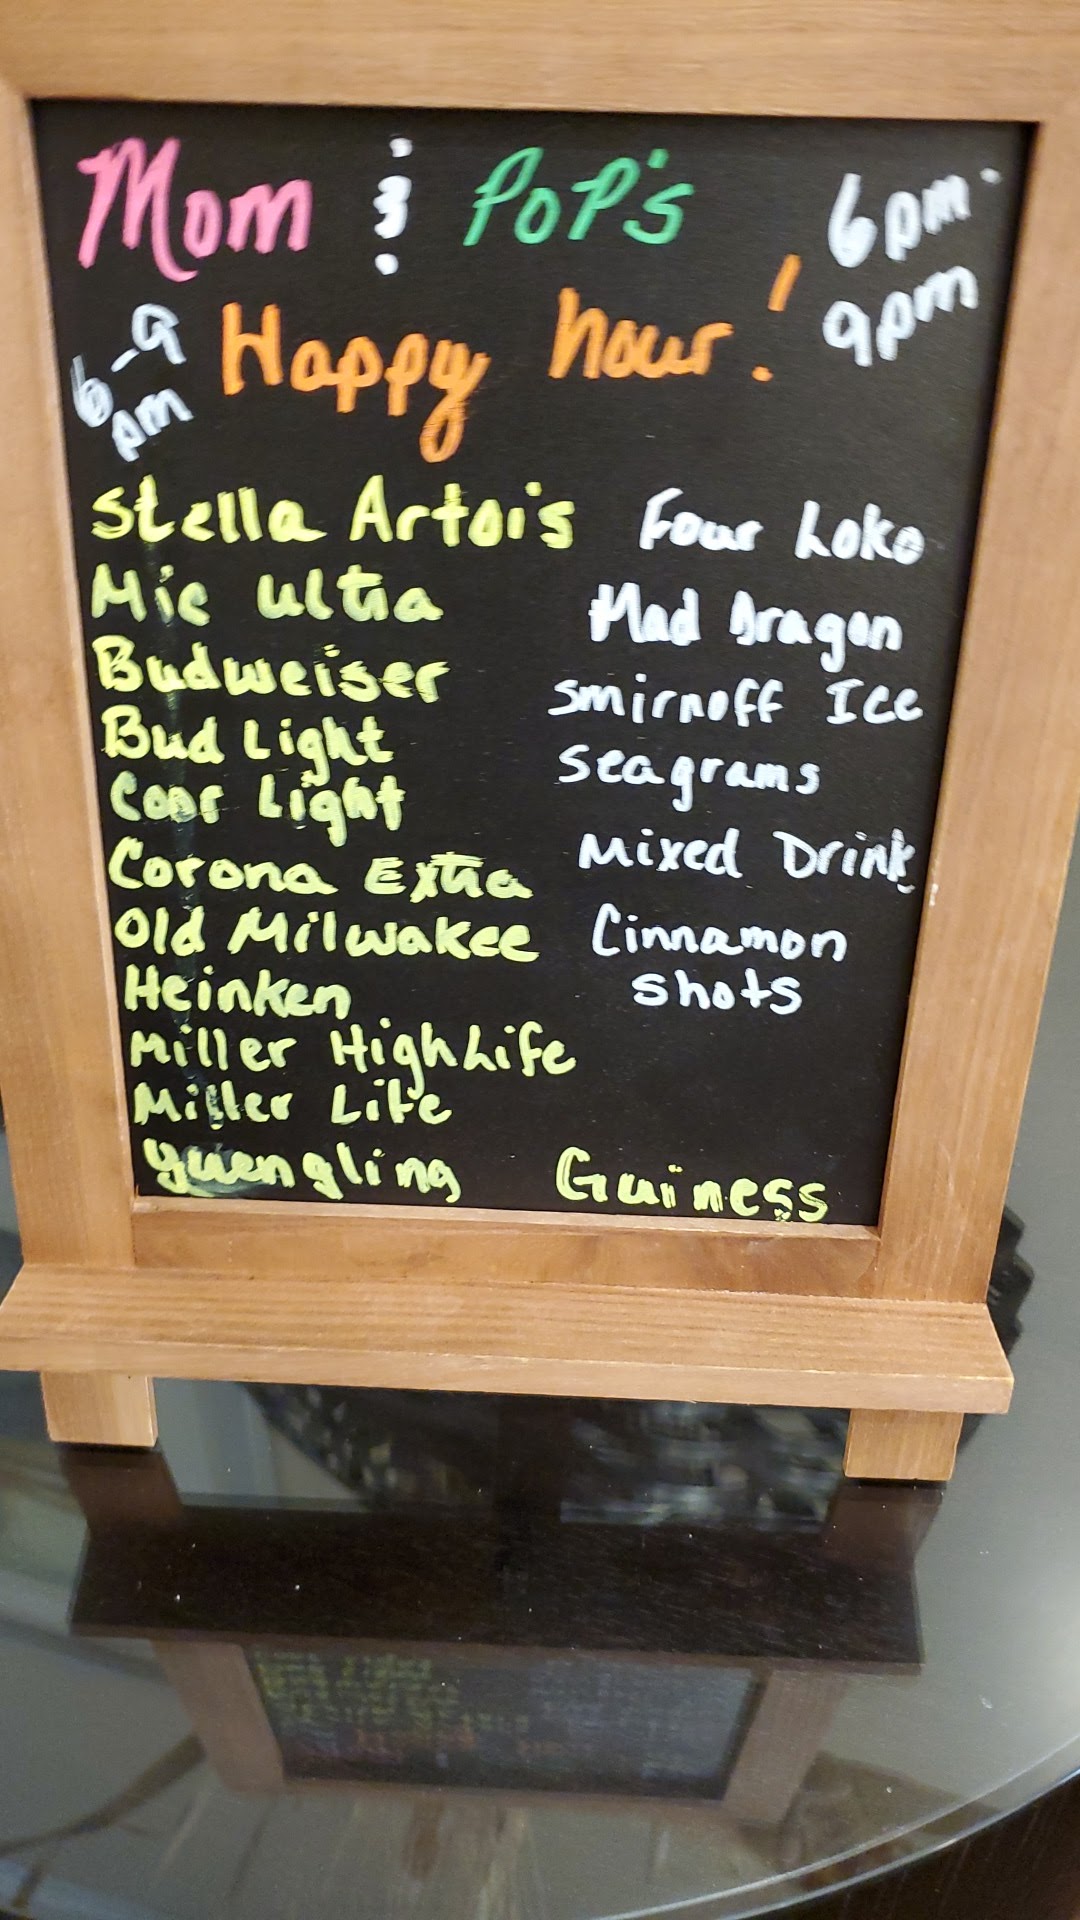 Mom & PoP's
6pm-
9pm
6-9
pm
Happy hour!
Stella Artois
Mic Ultra
Budweiser
Bud Light
Coor Light
Corona Extra
Old Milwakee
Heinken
Miller HighLife
Miller Lite
Yuengling
Four Loko
Mad Dragon
Smirnoff Ice
Seagrams
Mixed Drink
Cinnamon
shots
Guiness